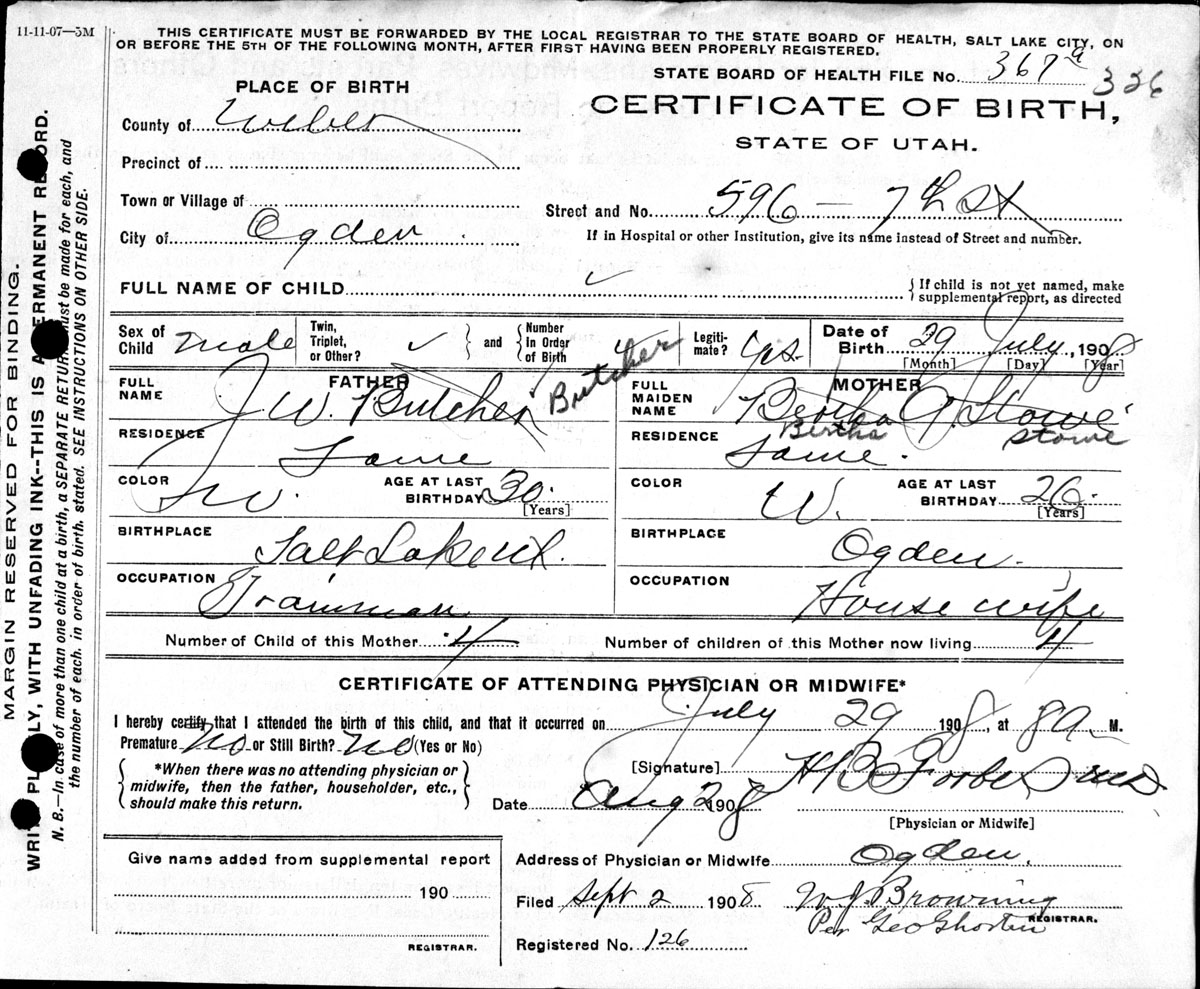 11-11-07—3M
THIS CERTIFICATE MUST BE FORWARDED BY THE LOCAL REGISTRAR TO THE STATE BOARD OF HEALTH, SALT LAKE CITY, ON
OR BEFORE THE 5TH OF THE FOLLOWING MONTH, AFTER FIRST HAVING BEEN PROPERLY REGISTERED.
STATE BOARD OF HEALTH FILE No. 367 a 326
PLACE OF BIRTH
CERTIFICATE OF BIRTH,
STATE OF UTAH.
County of Weber
Precinct of
Town or Village of
Street and No. 596 — 7th St
City of Ogden
If in Hospital or other Institution, give its name instead of Street and number.
FULL NAME OF CHILD ✓ { If child is not yet named, make
supplemental report, as directed
Sex of Child Male Twin, Triplet, or Other? ✓ } and { Number In Order of Birth 4 Legiti- mate? Yes. Date of Birth 29 July, 1908
[Month] [Day] [Year]
FATHER
FULL NAME J. W. Butcher Butcher
RESIDENCE Same
COLOR W. AGE AT LAST BIRTHDAY 30. [Years]
BIRTHPLACE Salt Lake Ut.
OCCUPATION Trainman
MOTHER
FULL MAIDEN NAME Bertha G. Stowe
Bertha Stowe
RESIDENCE Same.
COLOR W. AGE AT LAST BIRTHDAY 26. [Years]
BIRTHPLACE Ogden.
OCCUPATION House wife
Number of Child of this Mother 4 Number of children of this Mother now living 4
CERTIFICATE OF ATTENDING PHYSICIAN OR MIDWIFE*
I hereby certify that I attended the birth of this child, and that it occurred on July 29 1908, at 8 a M.
Premature No or Still Birth? No (Yes or No)
{ *When there was no attending physician or
midwife, then the father, householder, etc.,
should make this return. }
[Signature] H B Forbes MD
Date Aug 2 1908
[Physician or Midwife]
Give name added from supplemental report
190
REGISTRAR.
Address of Physician or Midwife Ogden.
Filed Sept 2 1908 W. J. Browning
REGISTRAR.
Per Geo Shorten
Registered No. 126
MARGIN RESERVED FOR BINDING.
WRITE PLAINLY, WITH UNFADING INK--THIS IS A PERMANENT RECORD.
N. B.—In case of more than one child at a birth, a SEPARATE RETURN must be made for each, and
the number of each, in order of birth, stated. SEE INSTRUCTIONS ON OTHER SIDE.